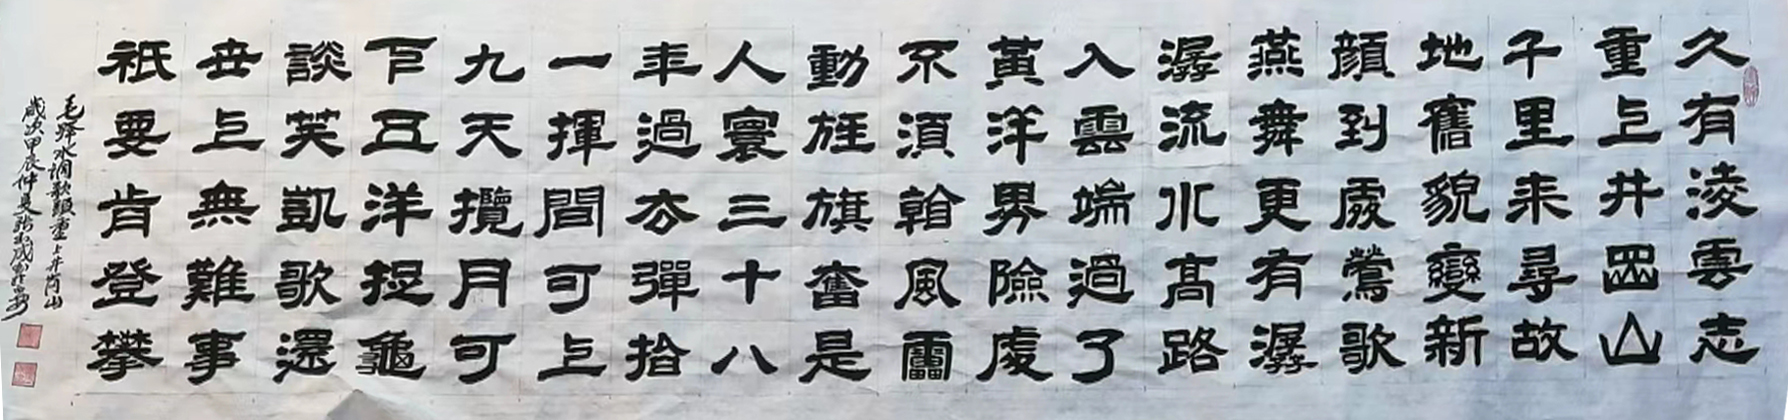 久有淩雲志
重上井岡山
千里来尋故
地舊貌變新
顏到處鶯歌
燕舞更有潺
潺流水高路
入雲端過了
黃洋界險處
不須看風雷
動旌旗奮是
人寰三十八
年過去彈指
一揮間可上
九天攬月可
下五洋捉龜
談笑凱歌還
世上無難事
祇要肯登攀
毛澤水調歌頭重上井岡山
歲次甲辰仲夏